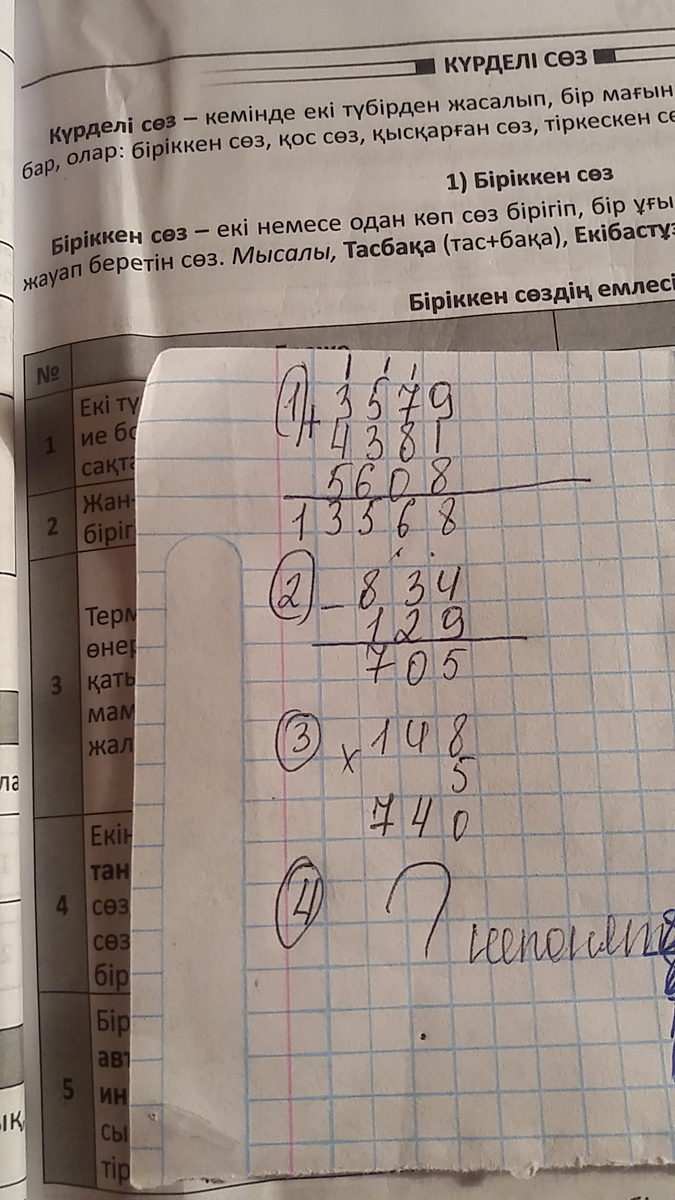 КҮРДЕЛІ СӨЗ
Күрделі сөз – кемінде екі түбірден жасалып, бір мағын
бар, олар: біріккен сөз, қос сөз, қысқарған сөз, тіркескен сө
1) Біріккен сөз
Біріккен сөз – екі немесе одан көп сөз бірігіп, бір ұғы
жауап беретін сөз. Мысалы, Тасбақа (тас+бақа), Екібастұз
Біріккен сөздің емлесі
№
1
Екі тү
ие бо
сақта
2
Жан-
біріг
3
Терм
өнер
қаты
мам
жал
4
Екін
тан
сөз
сөз
бір
5
Бір
авт
ин
сы
тір
1 1 1
1) + 3579
4381
5608
13568
2) – 834
129
705
3) x 148
5
740
4) ? непонят